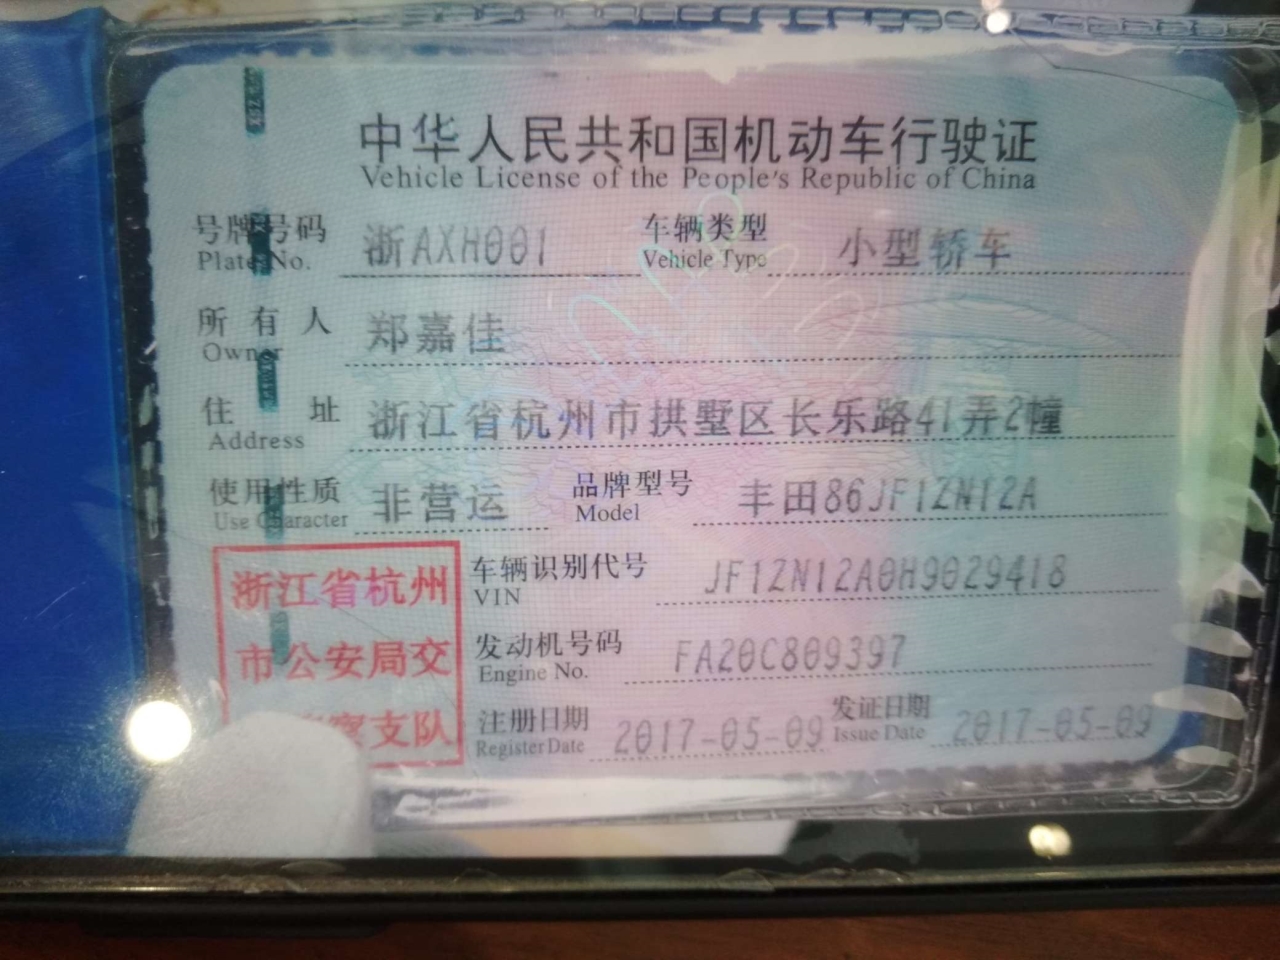 中华人民共和国机动车行驶证
Vehicle License of the People's Republic of China
号牌号码 浙AXH001 车辆类型 小型轿车
Plate No. Vehicle Type
所有人 郑嘉佳
Owner
住址 浙江省杭州市拱墅区长乐路41弄2幢
Address
使用性质 非营运 品牌型号 丰田86JF1ZN12A
Use Character Model
浙江省杭州
市公安局交
察支队
车辆识别代号 JF1ZN12A0H9029418
VIN
发动机号码 FA20C809397
Engine No.
注册日期 2017-05-09 发证日期 2017-05-09
Register Date Issue Date